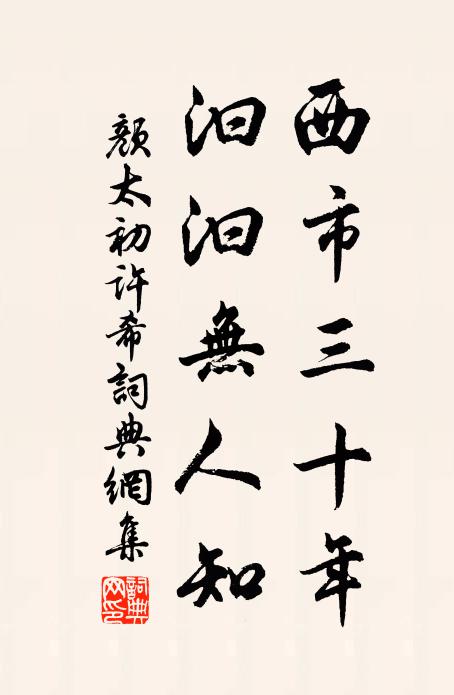 西市三十年
汩汩無人知
顏太初許希詞典網集
詞典網印